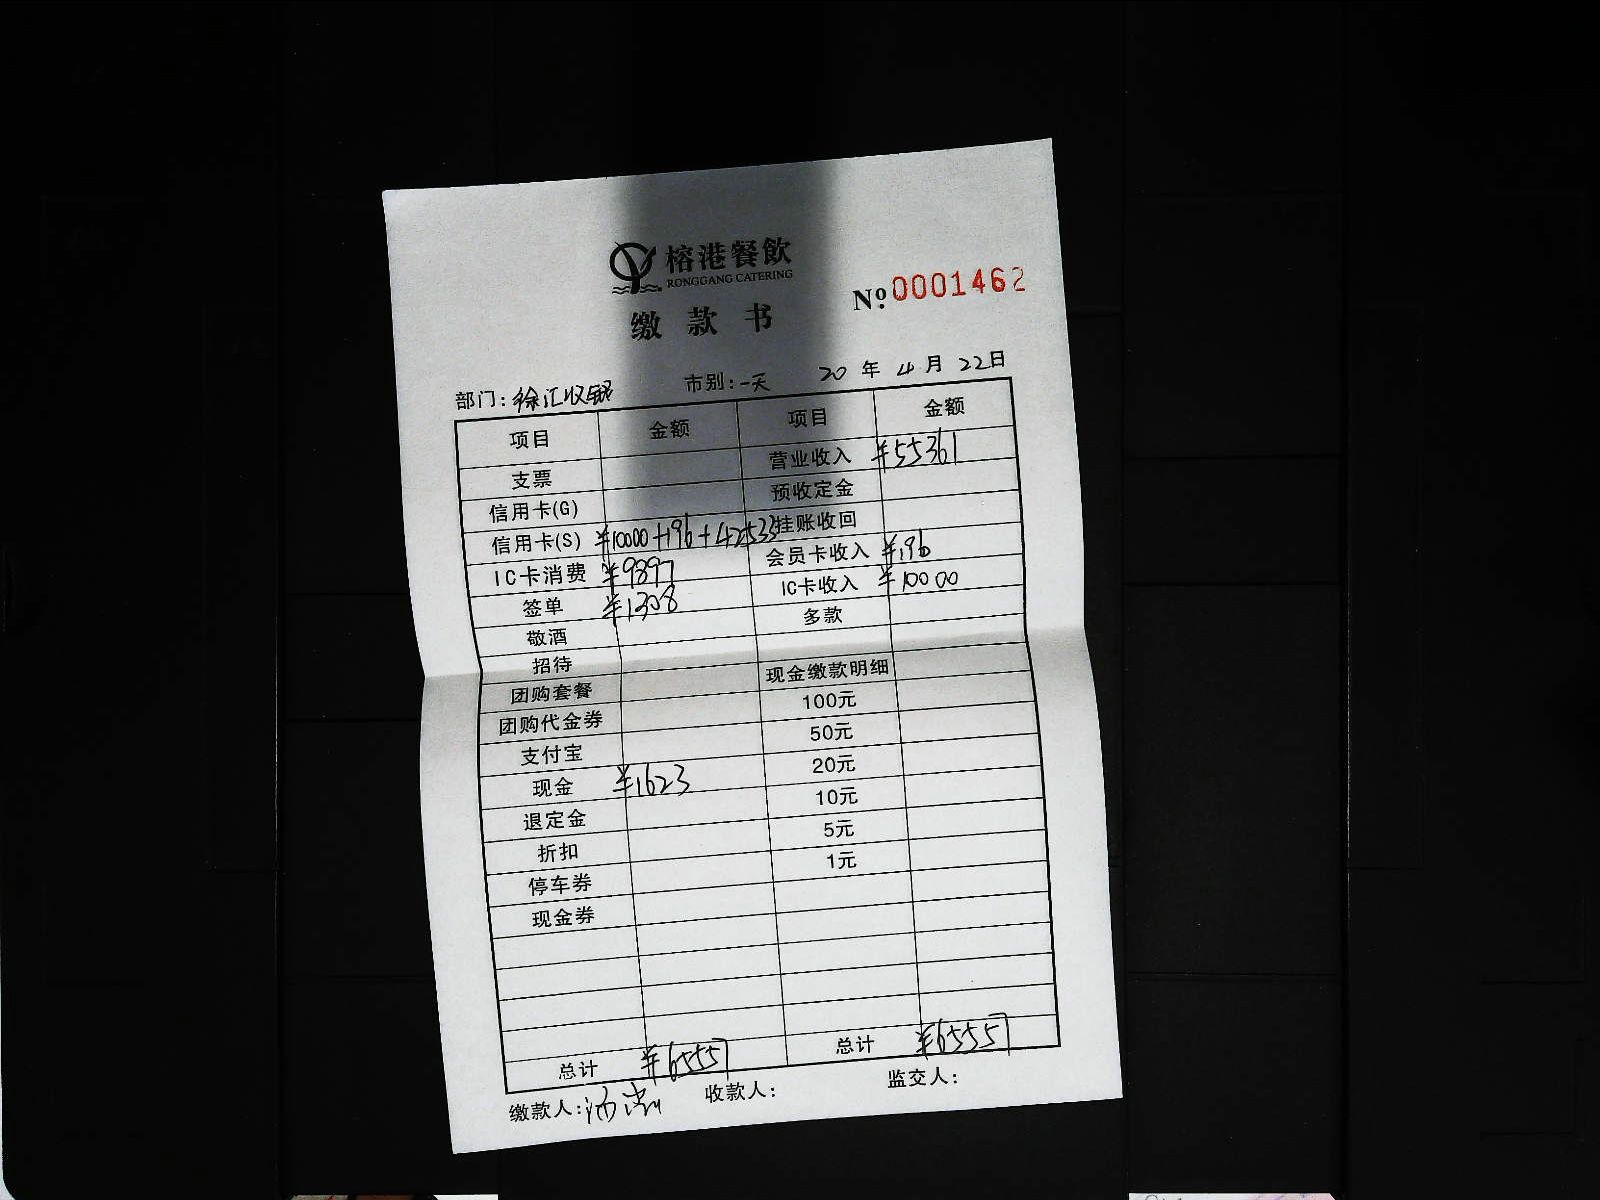 榕港餐飲
RONGGANG CATERING
缴款书
№ 0001462
部门:徐汇收银 市别:一天 20年4月22日
项目 金额 项目 金额
支票 营业收入 ¥55361
信用卡(G) 预收定金
信用卡(S) ¥10000+196+42533 挂账收回
IC卡消费 ¥9897 会员卡收入 ¥196
签单 ¥1308 IC卡收入 ¥10000
敬酒 多款
招待
团购套餐 现金缴款明细
团购代金券 100元
支付宝 50元
现金 ¥1623 20元
退定金 10元
折扣 5元
停车券 1元
现金券
总计 ¥65557 总计 ¥65557
缴款人: 收款人: 监交人: